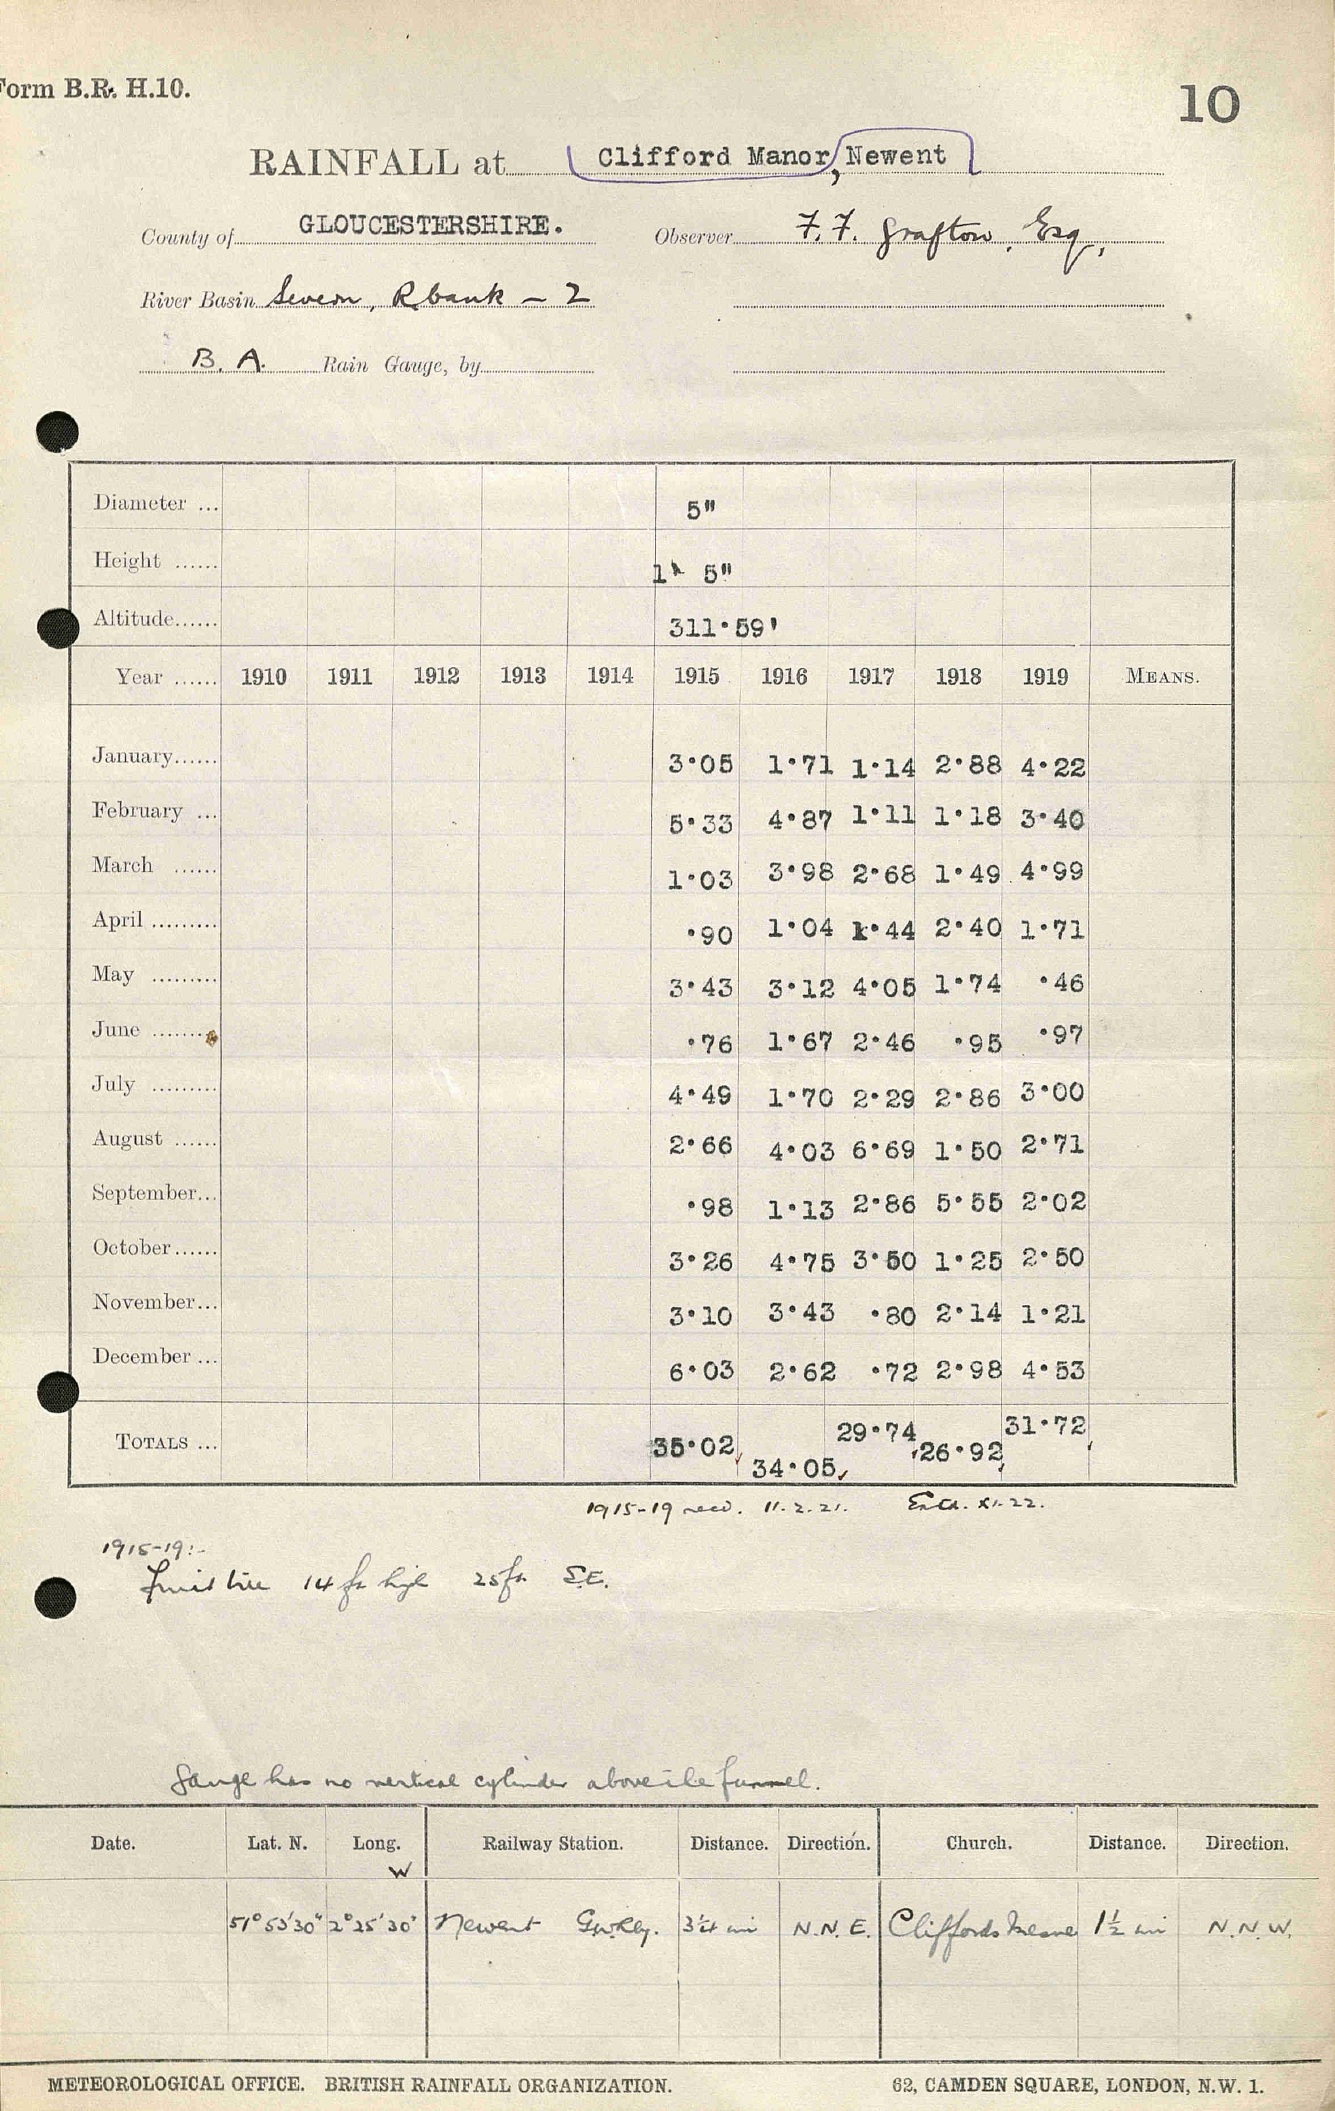 Form B.R. H.10.
10
RAINFALL at Clifford Manor, Newent
County of GLOUCESTERSHIRE. Observer F.F. Grafton, Esq,
River Basin Severn, R bank - 2
B. A. Rain Gauge, by
Diameter ... 5"
Height ...... 1' 5"
Altitude...... 311·59'
Year ...... 1910 1911 1912 1913 1914 1915 1916 1917 1918 1919 MEANS.
January...... 3·05 1·71 1·14 2·88 4·22
February ... 5·33 4·87 1·11 1·18 3·40
March ...... 1·03 3·98 2·68 1·49 4·99
April ......... ·90 1·04 1·44 2·40 1·71
May ......... 3·43 3·12 4·05 1·74 ·46
June ........ ·76 1·67 2·46 ·95 ·97
July ......... 4·49 1·70 2·29 2·86 3·00
August ...... 2·66 4·03 6·69 1·50 2·71
September... ·98 1·13 2·86 5·55 2·02
October...... 3·26 4·75 3·50 1·25 2·50
November... 3·10 3·43 ·80 2·14 1·21
December ... 6·03 2·62 ·72 2·98 4·53
TOTALS ... 35·02 34·05 29·74 26·92 31·72
1915-19 recd. 11.2.21. Entd. XI.22.
1915-19:-
fruit tree 14 ft high 25 ft S.E.
Gauge has no vertical cylinder above the funnel.
Date. Lat. N. Long. W Railway Station. Distance. Direction. Church. Distance. Direction.
51° 53' 30" 2° 25' 30" Newent G.W.Rly. 3¼ mi N.N.E. Cliffords Mesne 1½ mi N.N.W.
METEOROLOGICAL OFFICE. BRITISH RAINFALL ORGANIZATION. 62, CAMDEN SQUARE, LONDON, N.W. 1.